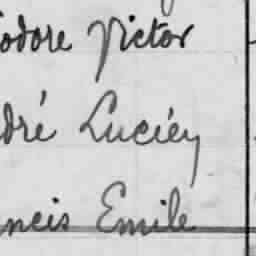 odore Victor
dré Luciéy
ncis Emile